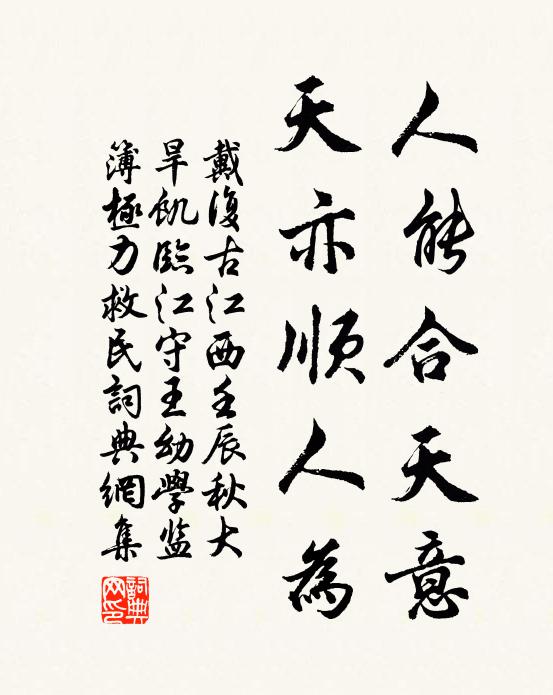 人能合天意
天亦順人為
戴復古江西壬辰秋大
旱飢臨江守王幼學監
簿極力救民詞典網集
詞典網印